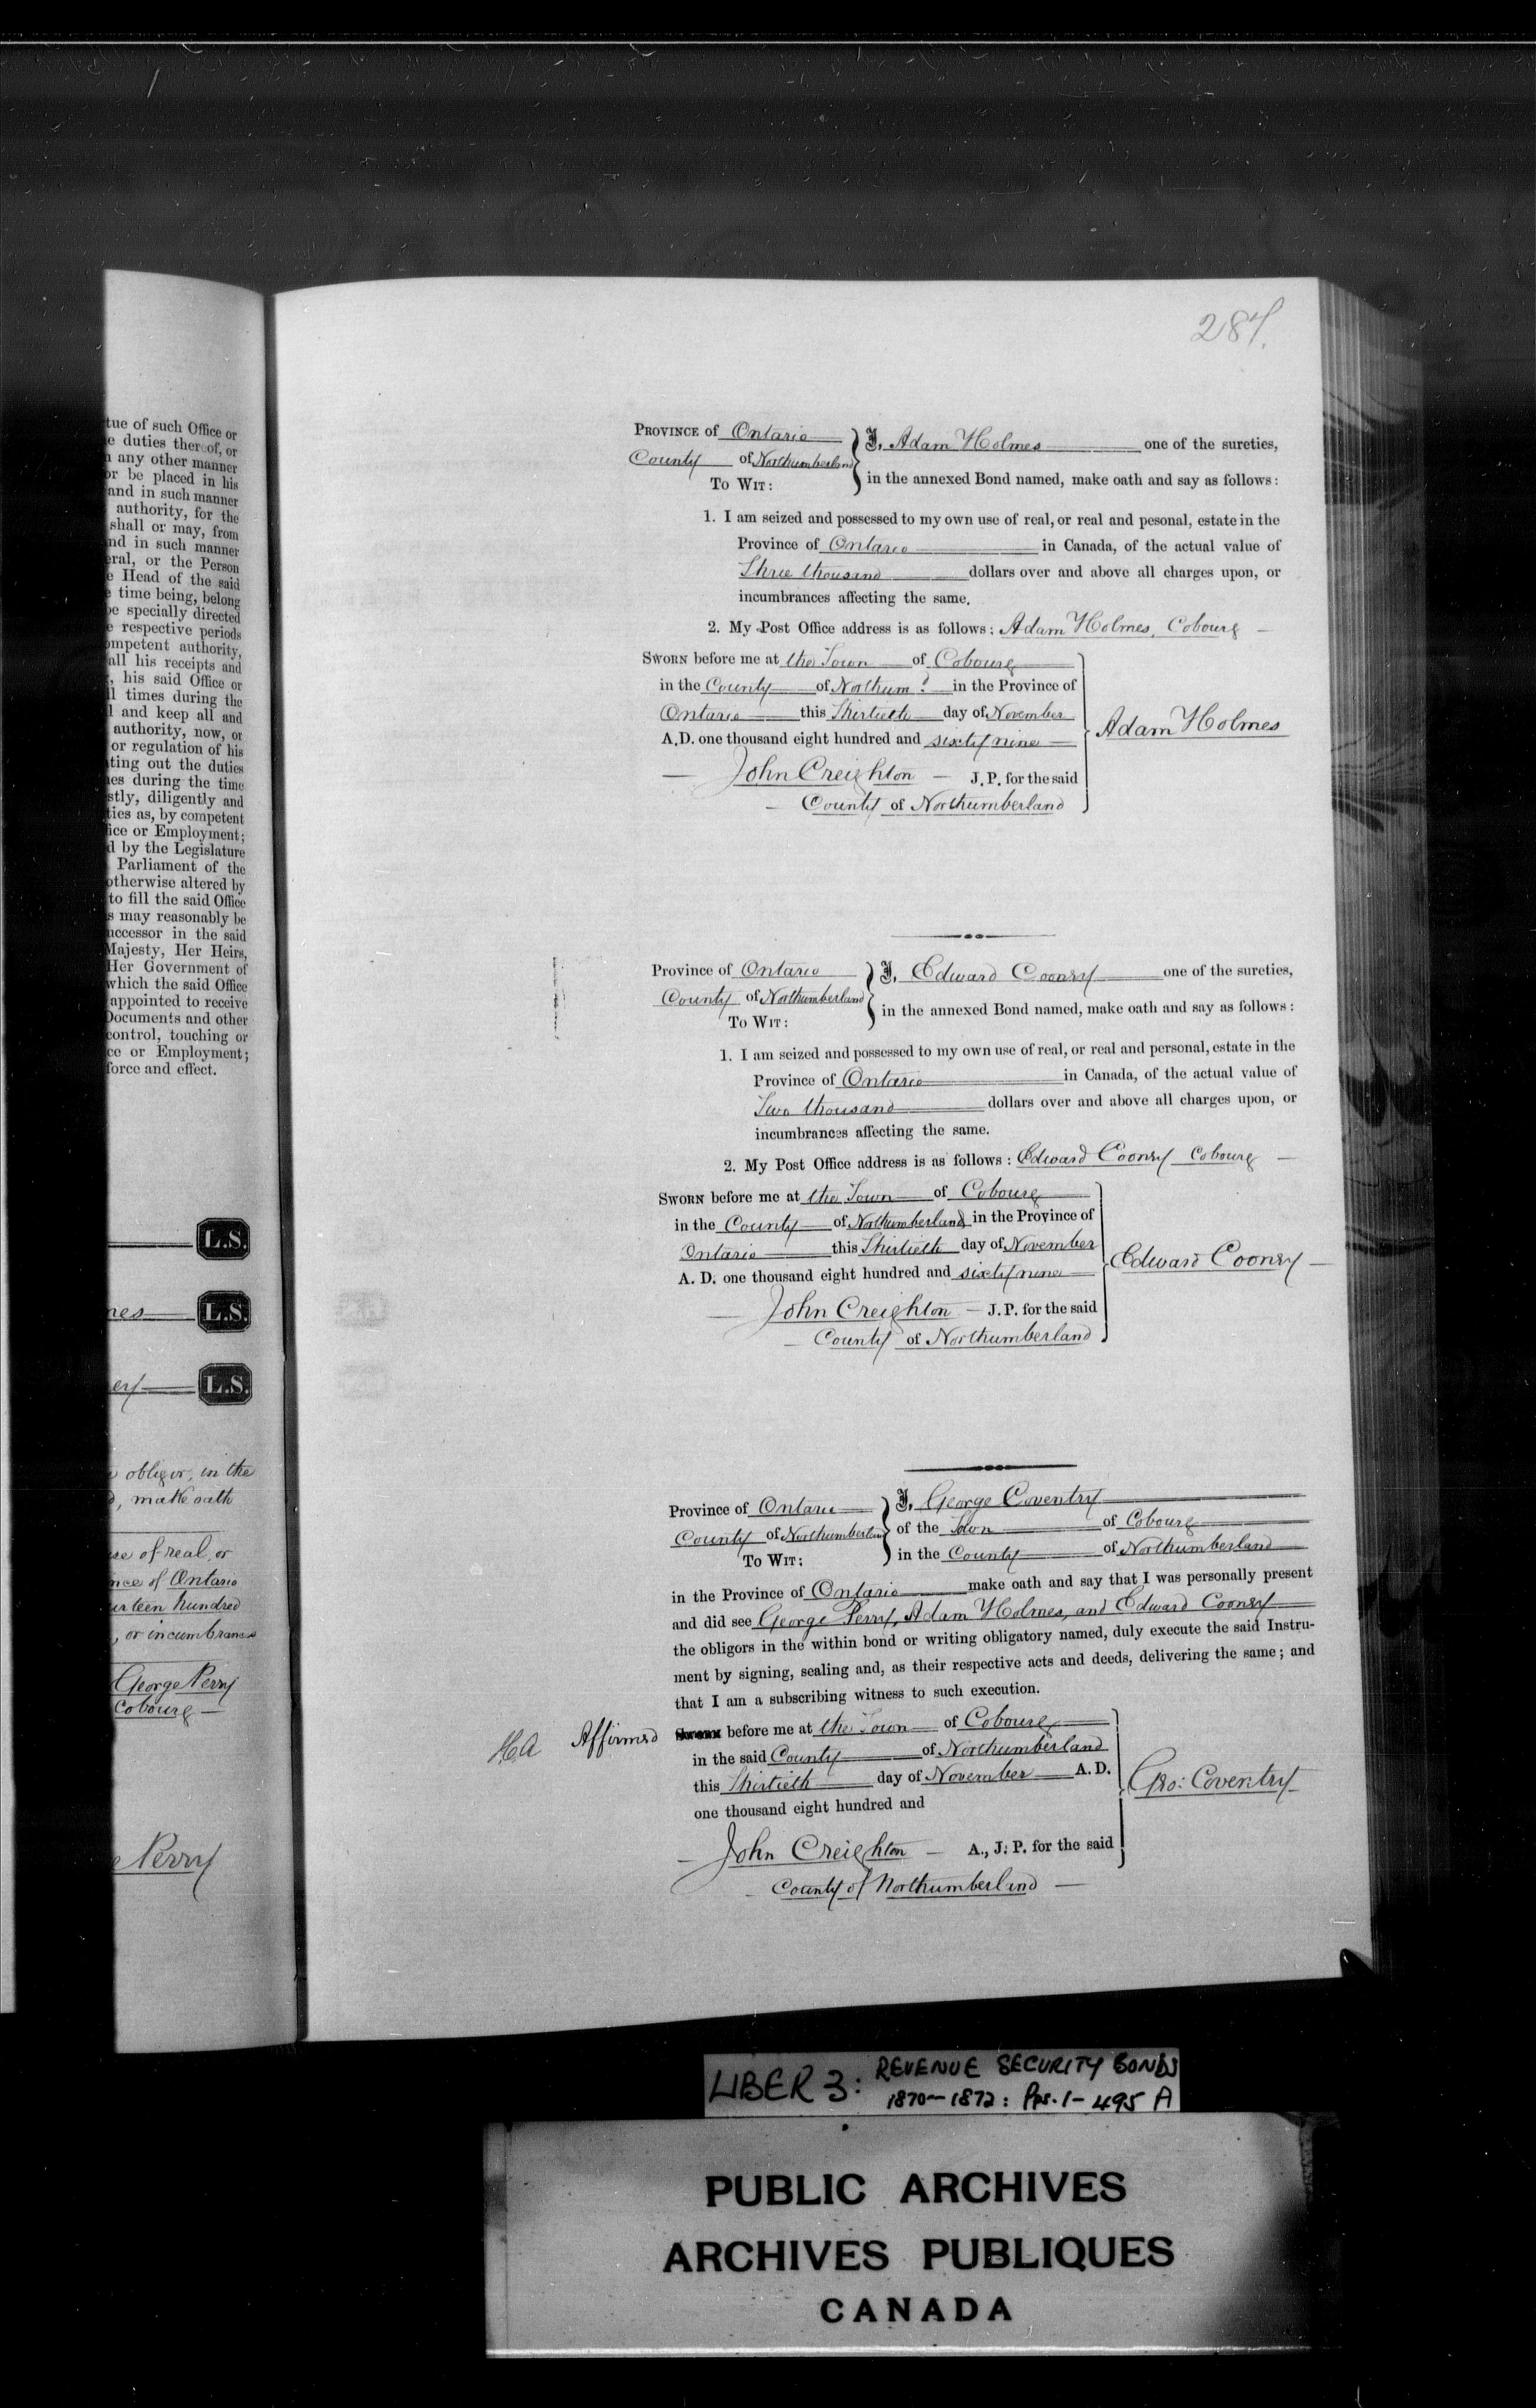 tue of such Office or
e duties thereof, or
any other manner
or be placed in his
and in such manner
authority, for the
shall or may, from
nd in such manner
eral, or the Person
e Head of the said
e time being, belong
be specially directed
e respective periods
ompetent authority,
all his receipts and
, his said Office or
ll times during the
l and keep all and
authority, now, or
or regulation of his
ting out the duties
es during the time
stly, diligently and
ties as, by competent
ice or Employment;
d by the Legislature
Parliament of the
otherwise altered by
to fill the said Office
s may reasonably be
uccessor in the said
Majesty, Her Heirs,
Her Government of
which the said Office
appointed to receive
Documents and other
control, touching or
ce or Employment;
force and effect.
L.S.
mes L.S.
ey L.S.
obligor, in the
, make oath
use of real, or
nce of Ontario
urteen hundred
, or incumbrances
George Perry
Cobourg
e Perry
PROVINCE of Ontario I, Adam Holmes one of the sureties,
County of Northumberland
in the annexed Bond named, make oath and say as follows:
TO WIT:
1. I am seized and possessed to my own use of real, or real and pesonal, estate in the
Province of Ontario in Canada, of the actual value of
Three thousand dollars over and above all charges upon, or
incumbrances affecting the same.
2. My Post Office address is as follows: Adam Holmes, Cobourg
SWORN before me at the Town of Cobourg
in the County of Northumd in the Province of
Ontario this Thirtieth day of November
A.D. one thousand eight hundred and sixty nine
Adam Holmes
John Creighton J.P. for the said
County of Northumberland
Province of Ontario I, Edward Cooney one of the sureties,
County of Northumberland
in the annexed Bond named, make oath and say as follows:
TO WIT:
1. I am seized and possessed to my own use of real, or real and personal, estate in the
Province of Ontario in Canada, of the actual value of
Two thousand dollars over and above all charges upon, or
incumbrances affecting the same.
2. My Post Office address is as follows: Edward Cooney Cobourg
SWORN before me at the Town of Cobourg
in the County of Northumberland, in the Province of
Ontario this Thirtieth day of November
A. D. one thousand eight hundred and sixty nine
Edward Cooney
John Creighton J.P. for the said
County of Northumberland
Province of Ontario I, George Coventry
County of Northumberland of the Town of Cobourg
TO WIT: in the County of Northumberland
in the Province of Ontario make oath and say that I was personally present
and did see George Perry, Adam Holmes, and Edward Cooney
the obligors in the within bond or writing obligatory named, duly execute the said Instru-
ment by signing, sealing and, as their respective acts and deeds, delivering the same; and
that I am a subscribing witness to such execution.
Affirmed Sworn before me at the Town of Cobourg
in the said County of Northumberland
this Thirtieth day of November A.D.
one thousand eight hundred and
Geo: Coventry
John Creighton A., J. P. for the said
County of Northumberland
LIBER 3: REVENUE SECURITY BONDS
1870-1872: Pps. 1-495 A
PUBLIC ARCHIVES
ARCHIVES PUBLIQUES
CANADA